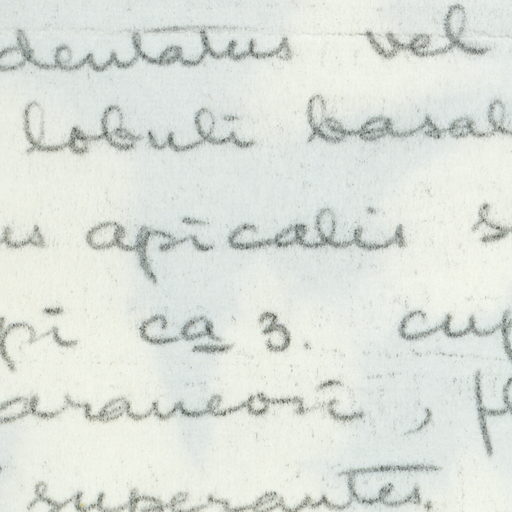 dentatus vel
lobuli basal
us apicalis s
pi ca 3. cup
araneosi, fl
superantes.